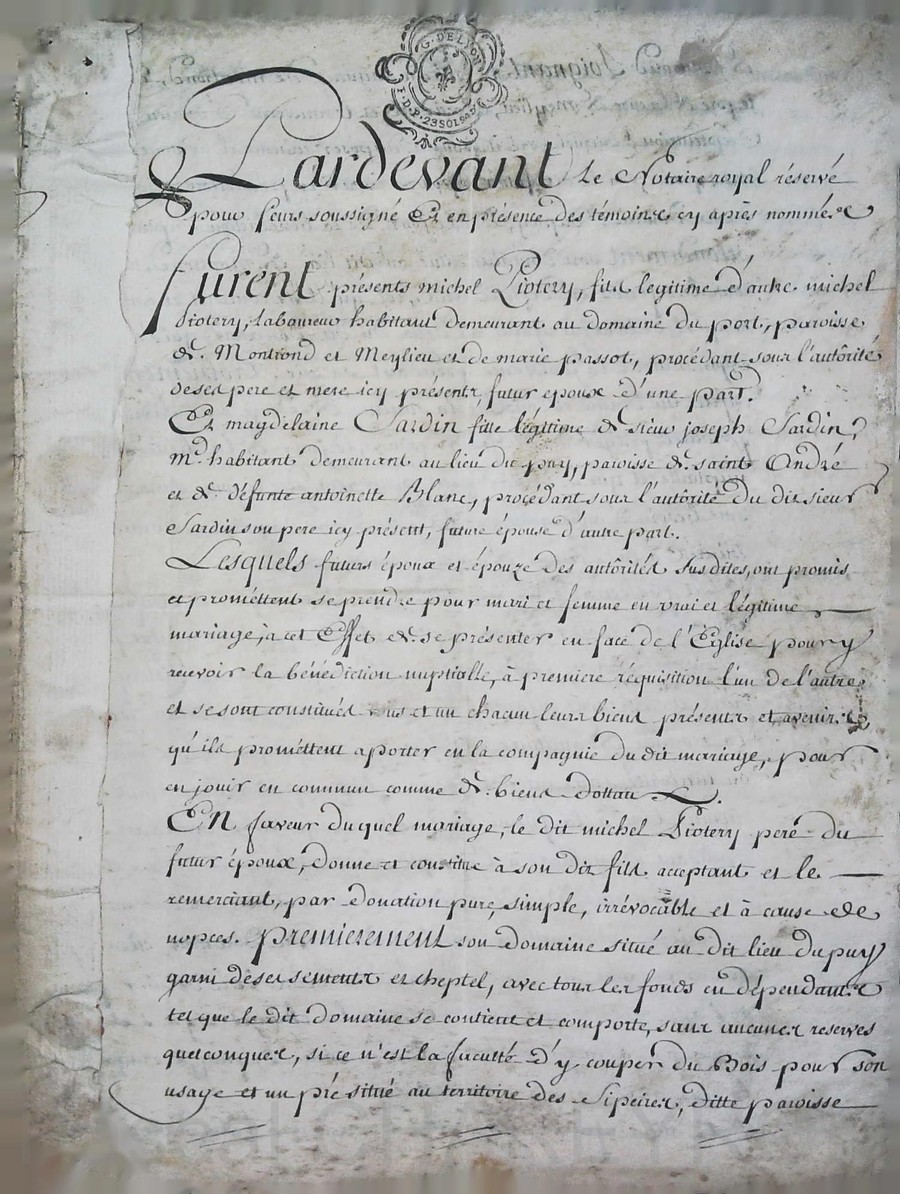 G. DE LYON
F.D.P. 23 SOLS
Pardevant Le Notaire royal réservé
pour feurs soussigné Et en présence des témoins cy après nommés
furent présents michel Piotery, fils legitime d'autre michel
Piotery, laboureur habitant demeurant au domaine du port, paroisse
de Montrond et Meylieu et de marie passot, procédant sous l'autôrité
de ses pere et mere icy présents, futur epoux d'une part.
Et magdelaine Jardin fille légitime de sieur joseph Jardin,
md. habitant demeurant au lieu du puy, paroisse de saint André
et de défunte antoinette Blanc, procédant sous l'autôrité du dit sieur
Jardin son pere icy présent, future épouse d'autre part.
Lesquels futurs époux et épouze des autôrités susdites, ont promis
et prométtent se prendre pour mari et femme en vrai et légitime
mariage, à cet Effet de se présenter en face de l'Église pour y
recevoir la bénédiction nuptialle, à premiere réquisition l'un de l'autre
et se sont constitués tous et un chacun leurs biens présents et avenirs
qu'ils prométtent aporter en la compagnie du dit mariage, pour
en jouir en commun comme de biens dottau
EN faveur du quel mariage, le dit michel Piotery pere du
futur époux, donne et constitue à son dit fils acceptant et le
remerciant, par donation pure, simple, irrévocable et à cause de
nopces. premierement son domaine situé au dit lieu du puy
garni de ses sements et cheptel, avec tous les fonds en dépendants
tel que le dit domaine se contient et comporte, sans aucunes reserves
quelconques, si ce n'est la faculté d'y couper du Bois pour son
usage et un pré situé au territoire des Sipeires, ditte paroisse